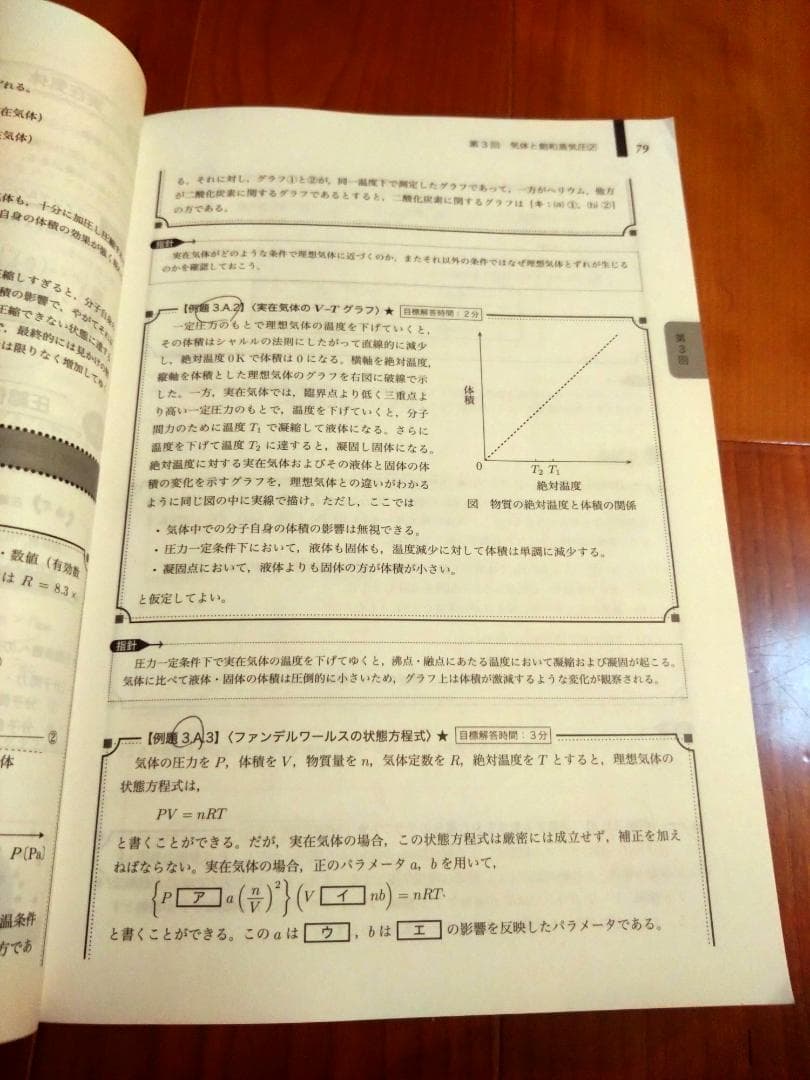 ずれる。
在気体)
気体)
体も，十分に加圧し圧縮す
自身の体積の効果が強く現
圧縮しすぎると，分子自身
積の影響で，やがてそれ
圧縮できない状態に達す
，最終的には見かけの
は限りなく増加してゆ
・数値（有効数
は R = 8.3 ×
②
体
P〔Pa〕
温条件
方であ
第3回 気体と飽和蒸気圧② 79
る。それに対し，グラフ①と②が，同一温度下で測定したグラフであって，一方がヘリウム，他方
が二酸化炭素に関するグラフであるとすると，二酸化炭素に関するグラフは{キ：(a) ①，(b) ②}
の方である。
指針
実在気体がどのような条件で理想気体に近づくのか，またそれ以外の条件ではなぜ理想気体とずれが生じる
のかを確認しておこう。
【例題 3.A.2】〈実在気体の V–T グラフ〉★ 目標解答時間：2分
一定圧力のもとで理想気体の温度を下げていくと，
その体積はシャルルの法則にしたがって直線的に減少
し，絶対温度 0 K で体積は 0 になる。横軸を絶対温度，
縦軸を体積とした理想気体のグラフを右図に破線で示
した。一方，実在気体では，臨界点より低く三重点よ
り高い一定圧力のもとで，温度を下げていくと，分子
間力のために温度 T₁ で凝縮して液体になる。さらに
温度を下げて温度 T₂ に達すると，凝固し固体になる。
絶対温度に対する実在気体およびその液体と固体の体
積の変化を示すグラフを，理想気体との違いがわかる
ように同じ図の中に実線で描け。ただし，ここでは
体積
0
T₂ T₁
絶対温度
図 物質の絶対温度と体積の関係
・気体中での分子自身の体積の影響は無視できる。
・圧力一定条件下において，液体も固体も，温度減少に対して体積は単調に減少する。
・凝固点において，液体よりも固体の方が体積が小さい。
と仮定してよい。
第3回
指針
圧力一定条件下で実在気体の温度を下げてゆくと，沸点・融点にあたる温度において凝縮および凝固が起こる。
気体に比べて液体・固体の体積は圧倒的に小さいため，グラフ上は体積が激減するような変化が観察される。
【例題 3.A.3】〈ファンデルワールスの状態方程式〉★ 目標解答時間：3分
気体の圧力を P，体積を V，物質量を n，気体定数を R，絶対温度を T とすると，理想気体の
状態方程式は，
PV = nRT
と書くことができる。だが，実在気体の場合，この状態方程式は厳密には成立せず，補正を加え
ねばならない。実在気体の場合，正のパラメータ a，b を用いて，
{P ア a (n/V)²} (V イ nb) = nRT
と書くことができる。この a は ウ ，b は エ の影響を反映したパラメータである。